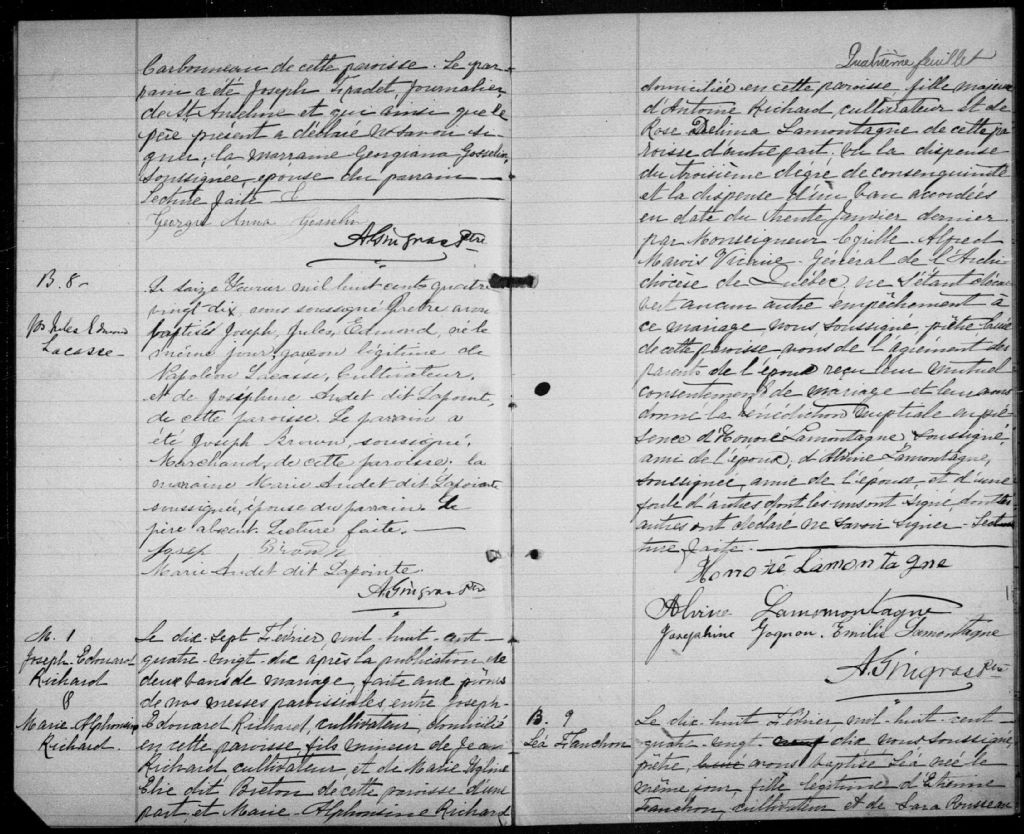 Carbonneau de cette paroisse. Le par-
rain a été Joseph Tradet, journalier,
de St Anselme et qui ainsi que le
père présent a déclaré ne savoir si-
gner; la marraine Georgiana Gosselin,
soussignée, épouse du parrain
Lecture faite
George Anna Gosselin
A Gingras Ptre
B. 8
Jos Jules Edmond
Lacasse
Le seize Février mil huit cent quatre
vingt dix, nous soussigné Prêtre avons
baptisé Joseph, Jules, Edmond, né le
même jour, garçon légitime de
Napoléon Lacasse, Cultivateur,
et de Joséphine Audet dit Lapointe,
de cette paroisse. Le parrain a
été Joseph Brown, soussigné,
Marchand, de cette paroisse; la
marraine Marie Audet dit Lapointe
soussignée, épouse du parrain. Le
père absent. Lecture faite.
Josep
Marie Audet dit Lapointe.
A Gingras Ptre
M. 1
Joseph-Edouard
Richard
&
Marie-Alphonsine
Richard.
Le dix-sept Février mil-huit-cent-
quatre-vingt-dix après la publication de
deux bans de mariage faite aux prônes
de nos messes paroissiales entre Joseph-
Edouard Richard, cultivateur, domicilié
en cette paroisse, fils mineur de Jean
Richard cultivateur, et de Marie
Elie dit Breton de cette paroisse d'une
part, et Marie-Alphonsine Richard,
Quatrième feuillet
domiciliée en cette paroisse, fille majeure
d'Antoine Richard, cultivateur et de
Rose Délima Lamontagne de cette pa
roisse d'autre part, vu la dispense
du troisième dégré de consenguinité
et la dispense d'un ban accordées
en date du trente janvier dernier
par Monseigneur Cyrille Alfred
Marois Vicaire-Général de l'Archi
diocèse de Québec, ne s'étant décou
vert aucun autre empêchement à
ce mariage nous, soussigné, prêtre, curé
de cette paroisse avons de l'agrément des
parents de l'époux reçu leur mutuel
consentement de mariage et leur avons
donné la bénédiction nuptiale en pré
sence d'Honoré Lamontagne, soussigné,
ami de l'époux, d'Alvine Lamontagne,
soussignée, amie de l'épouse, et d'une
foule d'autres dont les uns ont signé, dont les
autres ont déclaré ne savoir signer - Lec
ture faite.
Honoré Lamontagne
Alvine Lamomontagne
Josephine Gognon. Emilie Lamontagne
A. Gingras Ptre
B. 9
Léa Fanchon
Le dix-huit Février mil-huit-cent-
quatre-vingt dix nous soussigné
prêtre, avons baptisé Léa née le
même jour, fille légitime d'Etienne
Fanchon, cultivateur et de Sara Rousseau